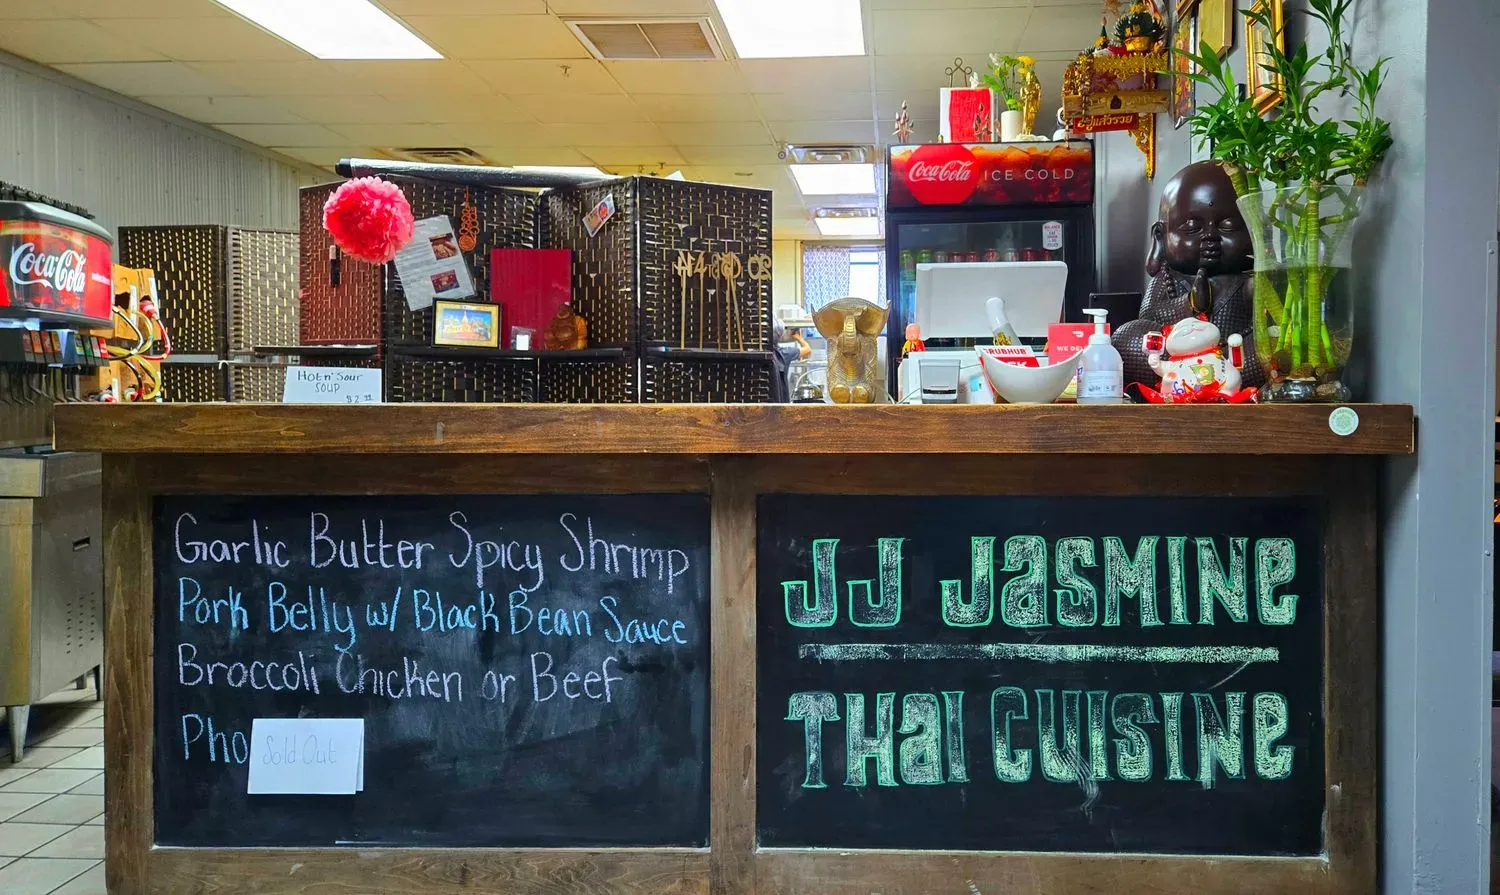 Coca-Cola ICE COLD
Coca-Cola
Hot n' Sour
SOUP
$2.99
GRUBHUB
WE DEL
Garlic Butter Spicy Shrimp
Pork Belly w/ Black Bean Sauce
Broccoli Chicken or Beef
Pho
Sold Out
JJ JASMINE
THAI CUISINE